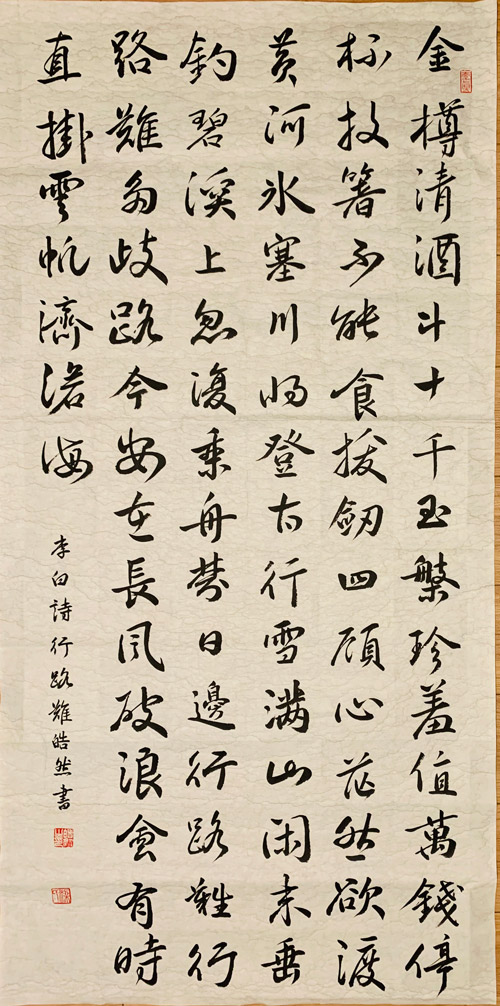 金樽清酒斗十千玉槃珍羞值萬錢停
杯投箸不能食拔劍四顧心茫然欲渡
黃河冰塞川將登太行雪滿山閑來垂
釣碧溪上忽復乘舟夢日邊行路難行
路難多歧路今安在長風破浪會有時
直掛雲帆濟滄海
李白詩行路難皓然書